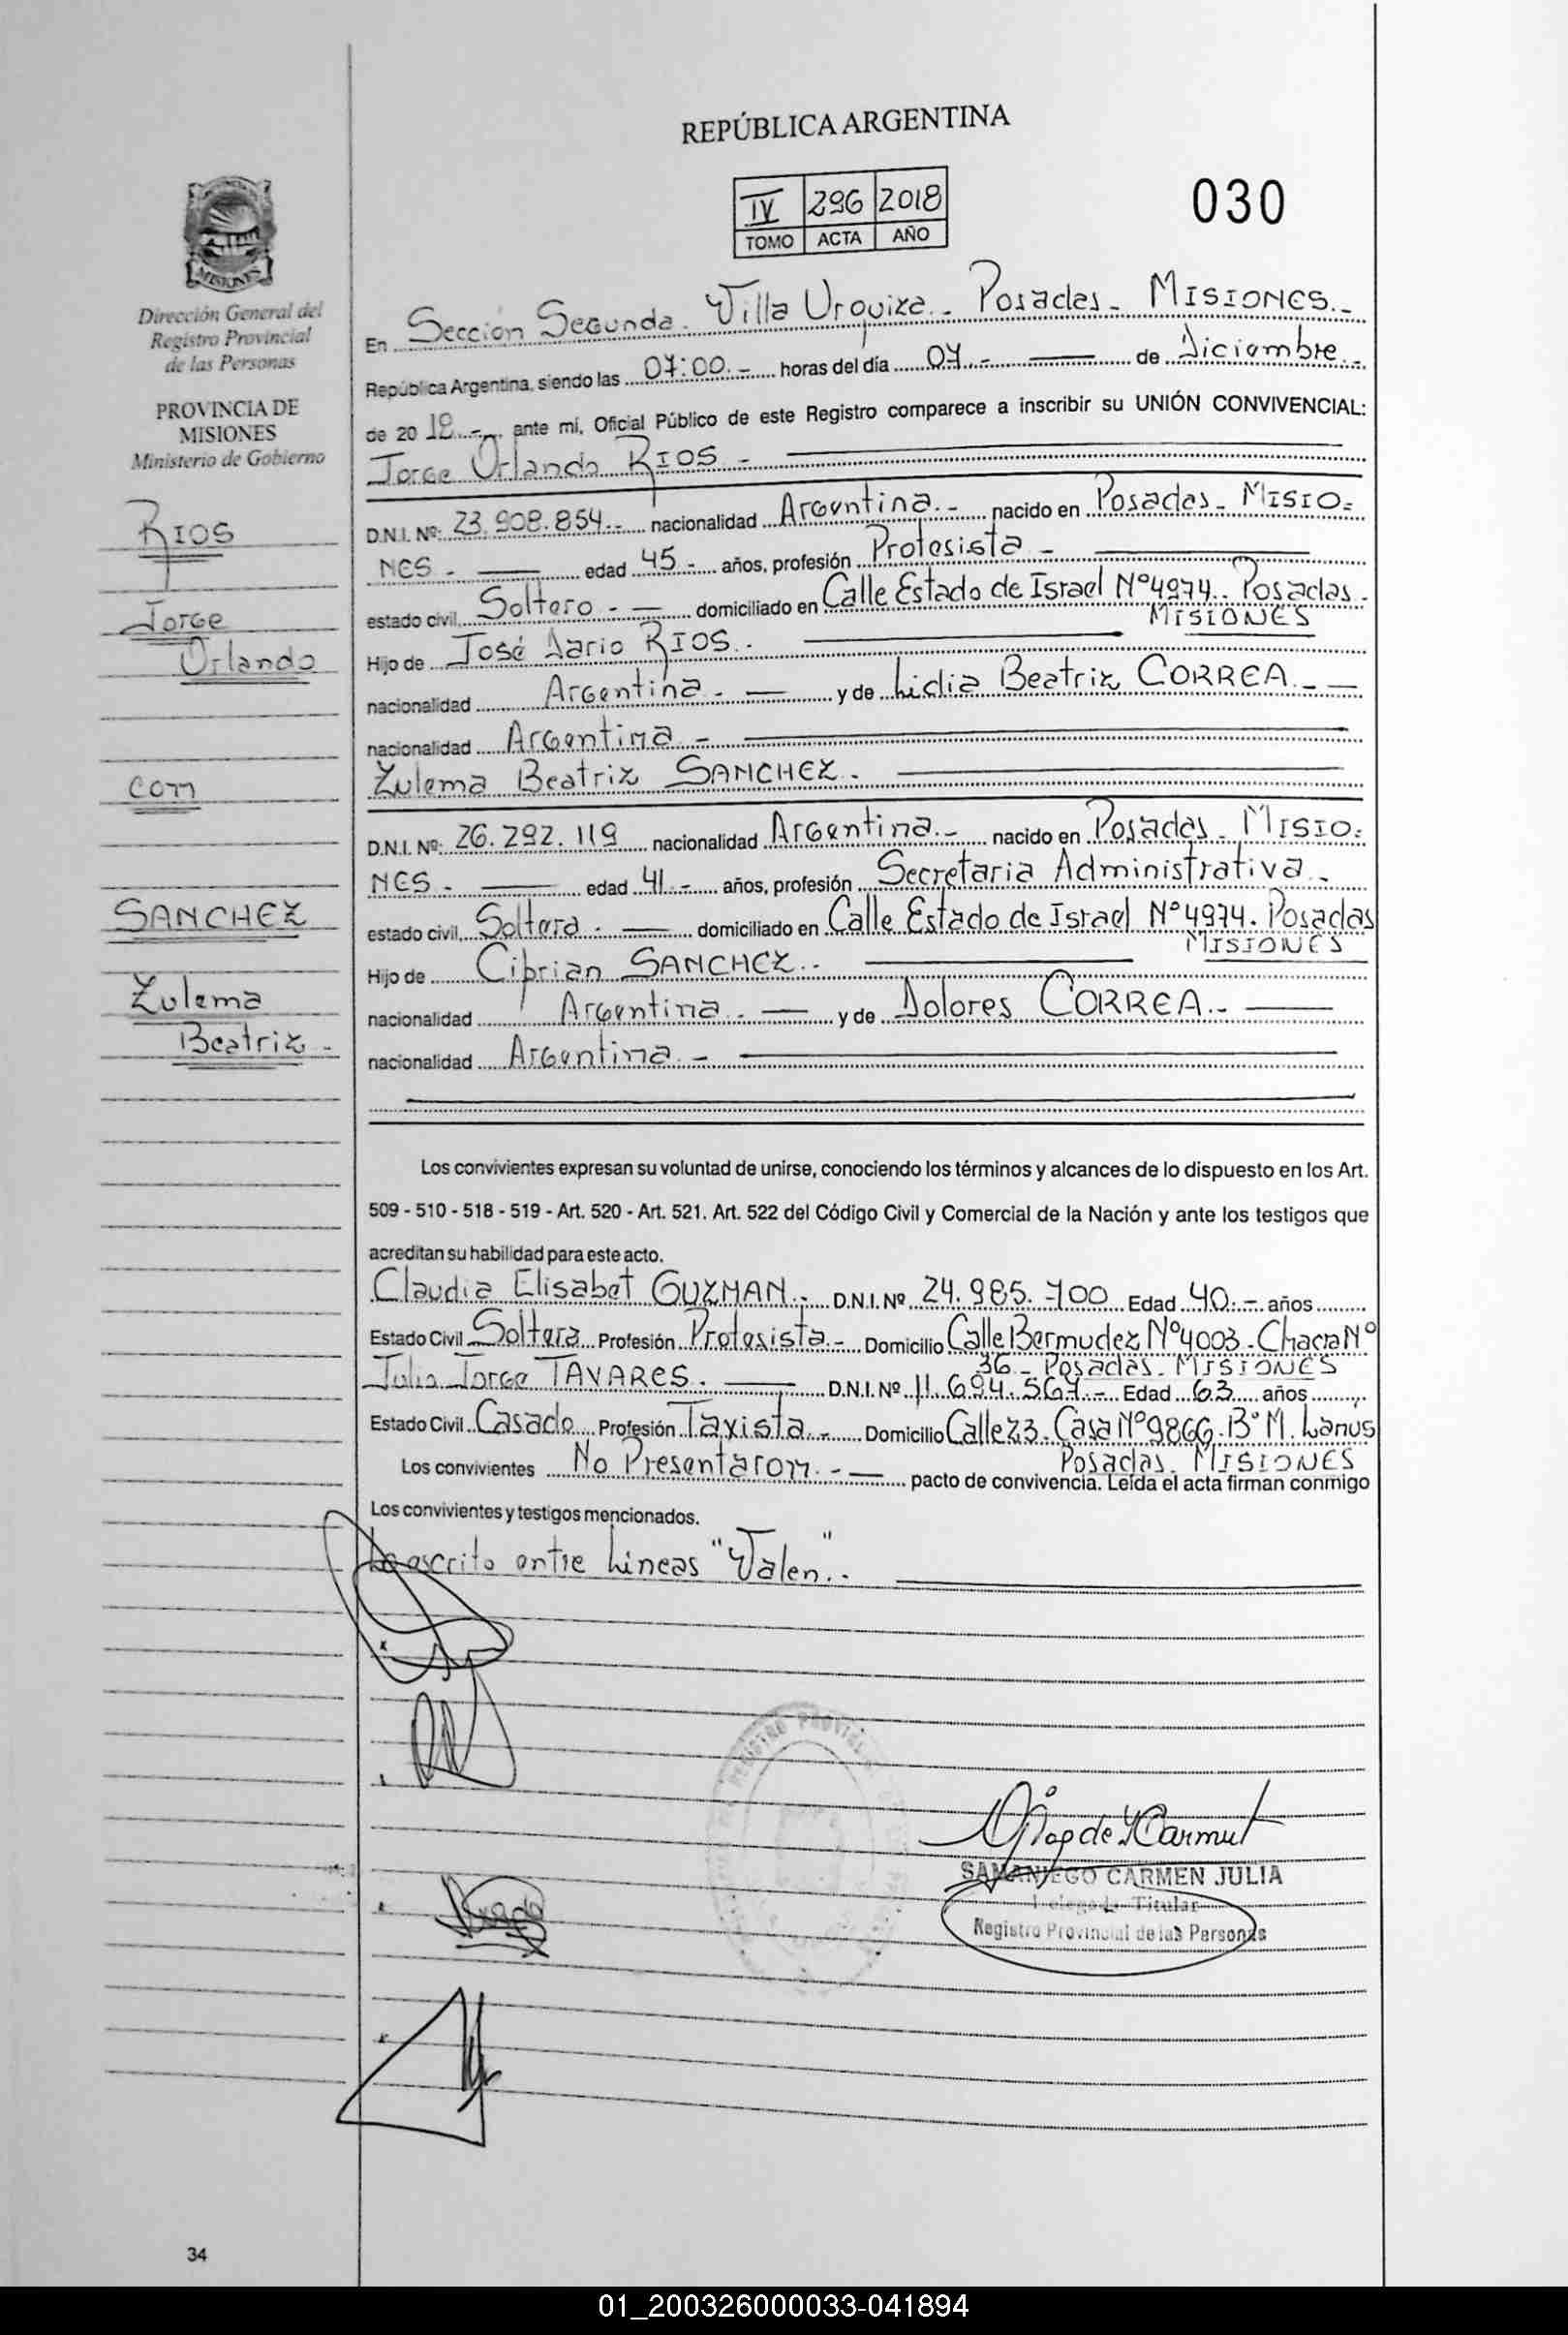 REPÚBLICA ARGENTINA
IV 296 2018
TOMO ACTA AÑO
030
MISIONES
Dirección General del
Registro Provincial
de las Personas
PROVINCIA DE
MISIONES
Ministerio de Gobierno
RIOS
Jorge
Orlando
con
SANCHEZ
Zulema
Beatriz -
En Sección Segunda. Villa Urquiza - Posadas - MISIONES.-
República Argentina, siendo las 07:00.- horas del día 07.- de Diciembre.-
de 20 18.- ante mí, Oficial Público de este Registro comparece a inscribir su UNIÓN CONVIVENCIAL:
Jorge Orlando RIOS -
D.N.I. Nº: 23.908.854.- nacionalidad Argentina.- nacido en Posadas - MISIO-
NES - edad 45 - años, profesión Protesista -
estado civil Soltero - domiciliado en Calle Estado de Israel Nº4974. Posadas -
MISIONES
Hijo de José Dario RIOS.-
nacionalidad Argentina - y de Lidia Beatriz CORREA.-
nacionalidad Argentina -
Zulema Beatriz SANCHEZ.
D.N.I. Nº: 26.292.119 nacionalidad Argentina.- nacido en Posadas - MISIO-
NES - edad 41.- años, profesión Secretaria Administrativa -
estado civil Soltera - domiciliado en Calle Estado de Israel Nº4974. Posadas
MISIONES
Hijo de Ciprian SANCHEZ.-
nacionalidad Argentina.- y de Dolores CORREA.-
nacionalidad Argentina.-
Los convivientes expresan su voluntad de unirse, conociendo los términos y alcances de lo dispuesto en los Art.
509 - 510 - 518 - 519 - Art. 520 - Art. 521. Art. 522 del Código Civil y Comercial de la Nación y ante los testigos que
acreditan su habilidad para este acto.
Claudia Elisabet GUZMAN.- D.N.I. Nº 24.985.700 Edad 40.- años
Estado Civil Soltera Profesión Protesista - Domicilio Calle Bermudez Nº4003 - Chacra Nº
36 - Posadas - MISIONES
Julio Jorge TAVARES. D.N.I. Nº 11.694.567.- Edad 63 años
Estado Civil Casado Profesión Taxista.- Domicilio Calle 23. Casa Nº9866. Bº M. Lanús
Posadas. MISIONES
Los convivientes No Presentaron.- pacto de convivencia. Leída el acta firman conmigo
Los convivientes y testigos mencionados.
Lo escrito entre Lineas "Valen".-
REGISTRO PROVINCIAL
SAMANIEGO CARMEN JULIA
Delegada Titular
Registro Provincial de las Personas
34
01_200326000033-041894